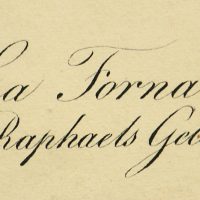 La Forna
Raphaels Geb